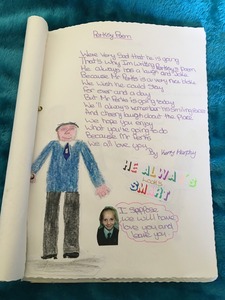 Parting Poem
We're very sad that he is going
That's why I'm writing Partesy's Poem
He always has a laugh and joke
Because Mr Perks is a very nice bloke
We wish he could stay
For ever and a day
But Mr Perks is going today
We'll always remember his smiling face
And cheery laugh about the place
We hope you enjoy
What you're going to do
Because Mr Perks
We all love you
By Kerry Murphy
HE ALWAYS
looks
SMART
I suppose
we will have
love you and
leave you